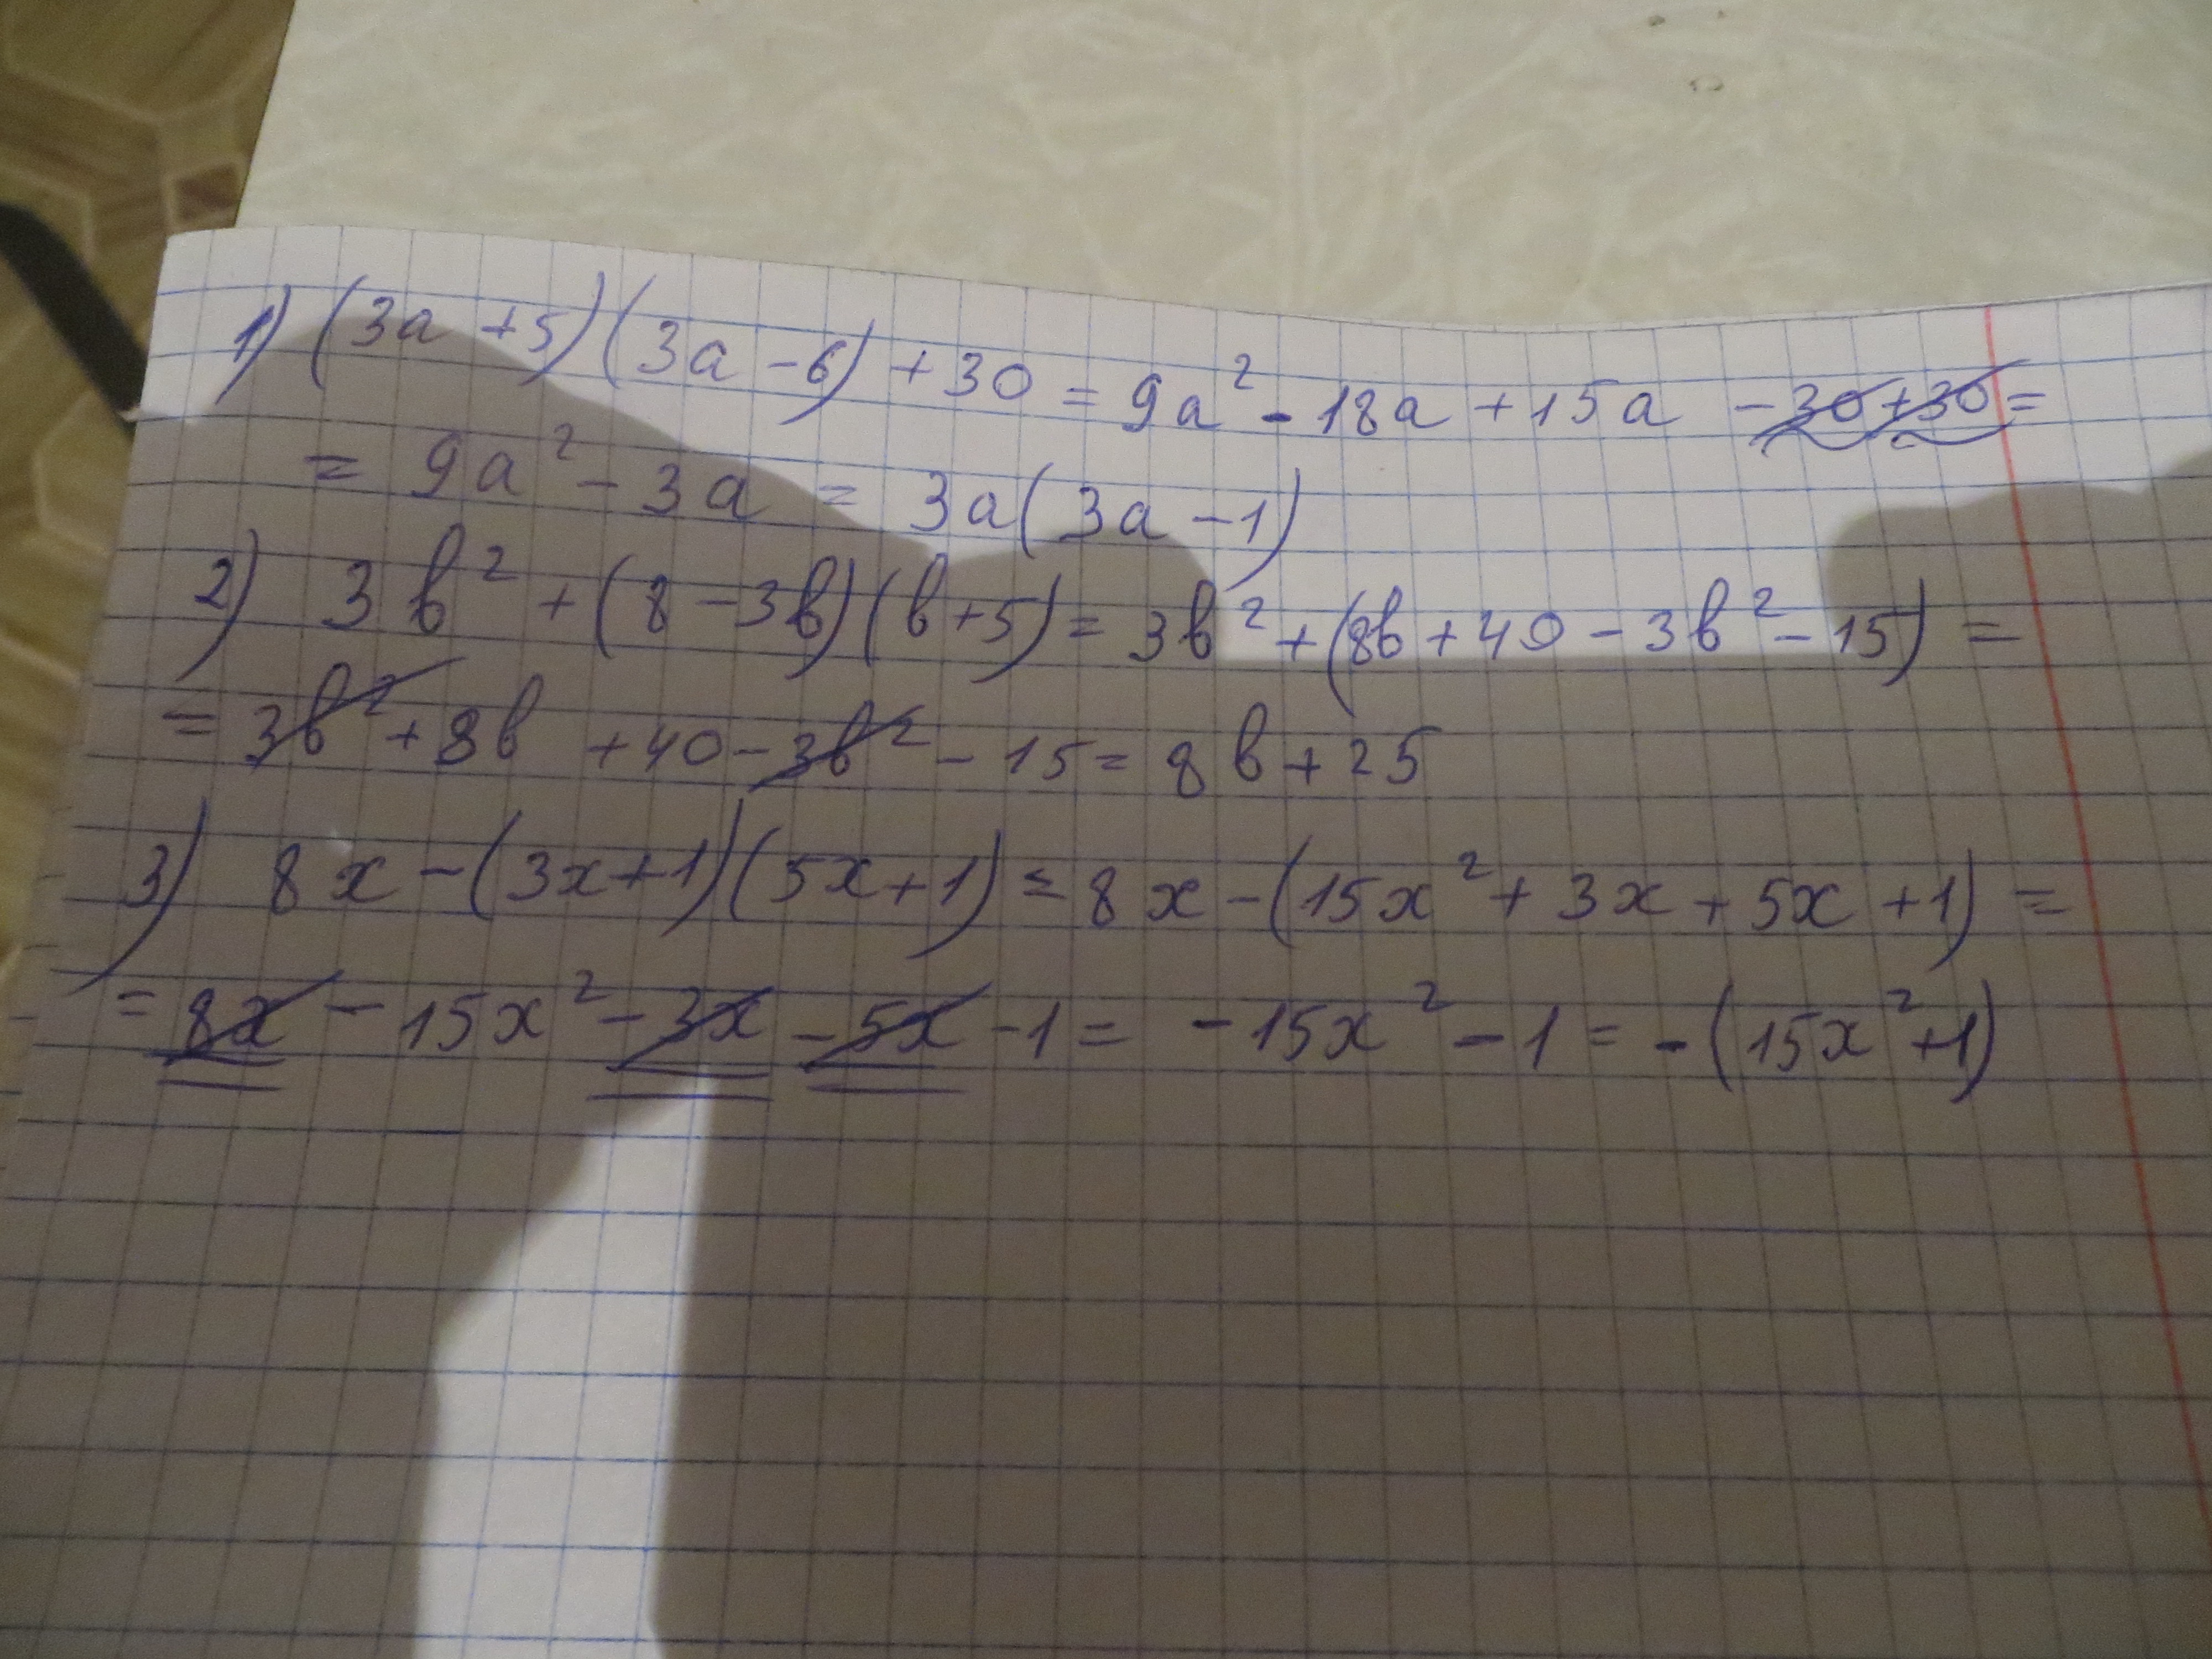 1) (3a + 5)(3a - 6) + 30 = 9a² - 18a + 15a - 30 + 30 =
= 9a² - 3a = 3a(3a - 1)
2) 3в² + (8 - 3в)(в + 5) = 3в² + (8в + 40 - 3в² - 15) =
= 3в² + 8в + 40 - 3в² - 15 = 8в + 25
3) 8x - (3x + 1)(5x + 1) = 8x - (15x² + 3x + 5x + 1) =
= 8x - 15x² - 3x - 5x - 1 = -15x² - 1 = -(15x² + 1)